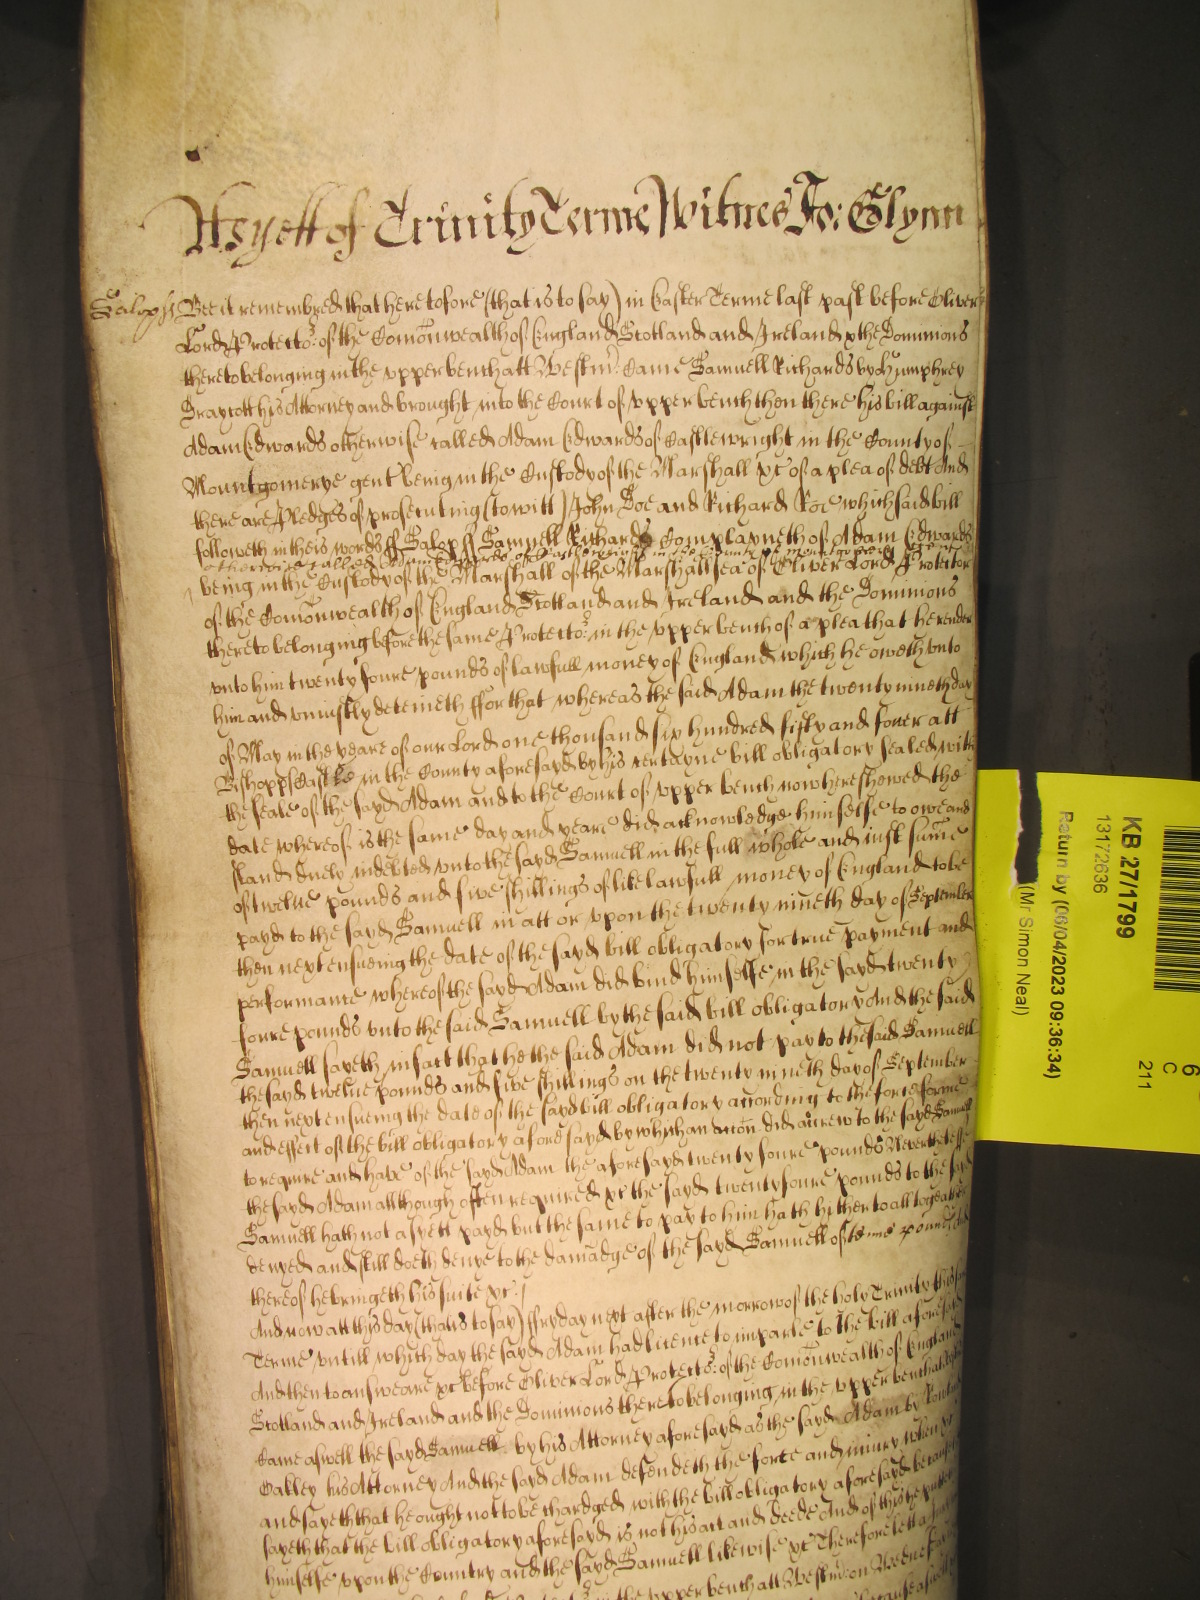 As yett of Trinity Terme Witnes Jo: Glynn
Salop ss Bee it remembred that heretofore (that is to say) in Easter Terme last past before Oliver
Lord Protector of the Comonwealth of England Scotland and Ireland & the Dominions
thereto belonging in the upper bench att Westmr Came Samuell Richards by Humphrey
Graycott his Attorney and brought into the Court of upper bench then there his bill against
Adam Edwards otherwise called Adam Edwards of Castlewright in the County of
Mountgomerye gent being in the Custody of the Marshall &c of a plea of debt And
there are Pledges of prosecuting (to witt) John Doe and Richard Roe which said bill
followeth in theis words ss Salop ss Samuell Richards Complayneth of Adam Edwards
otherwise called Adam Edwards of Castlewright in the County of Mountgomery gent
being in the Custody of the Marshall of the Marshallsea of Oliver Lord Protector
of the Comonwealth of England Scotland and Ireland and the Dominions
thereto belonging before the same Protector in the upper bench of a plea that he render
unto him twenty foure pounds of lawfull money of England which he oweth unto
him and uniustly deteineth ffor that whereas the said Adam the twenty nineth day
of May in the yeare of our Lord one thousand six hundred fifty and fower att
Bishopps Castle in the County aforesayd by his certayne bill obligatory sealed with
the seale of the sayd Adam and to the Court of upper bench now here shewed the
date whereof is the same day and yeare did acknowledge himselfe to owe and
stand duely indebted unto the sayd Samuell in the full whole and iust summe
of twelve pounds and five shillings of like lawfull money of England to be
payd to the sayd Samuell in att or upon the twenty nineth day of September
then next ensueing the date of the sayd bill obligatory for true payment and
performance whereof the sayd Adam did bind himselfe in the sayd twenty
foure pounds unto the said Samuell by the said bill obligatory And the said
Samuell sayeth in fact that he the said Adam did not pay to the said Samuell
the sayd twelve pounds and five shillings on the twenty nineth day of September
then next ensueing the date of the sayd bill obligatory according to the force forme
and effect of the bill obligatory aforesayd by which an accon did accrew to the sayd Samuell
to require and have of the sayd Adam the aforesayd twenty foure pounds Neverthelesse
the sayd Adam allthough often required &c the sayd twenty foure pounds to the sayd
Samuell hath not as yett payd but the same to pay to him hath hitherto alltogeather
denyed and still doeth denye to the damadge of the sayd Samuell of tenne pounds And
thereof he bringeth his suite &c
And now att this day (that is to say) ffryday next after the morrow of the holy Trinity this
Terme untill which day the sayd Adam had licence to imparle to the bill aforesayd
And then to answeare &c before Oliver Lord Protector of the Comonwealth of England
Scotland and Ireland and the Dominions thereto belonging in the upper bench att
Came aswell the sayd Samuell by his Attorney aforesayd as the sayd Adam by
Oakley his Attorney And the sayd Adam defendeth the force and iniury when &c
and sayeth that he ought not to be chardged with the bill obligatory aforesayd because
sayeth that the bill obligatory aforesayd is not his act and deede And of this he putteth
himselfe upon the Country and the sayd Samuell likewise &c Therefore lett a
in the upper bench att Westmr on
KB 27/1799
13172636
Return by (06/04/2023 09:36:34)
(Mr Simon Neal)
6
C
211